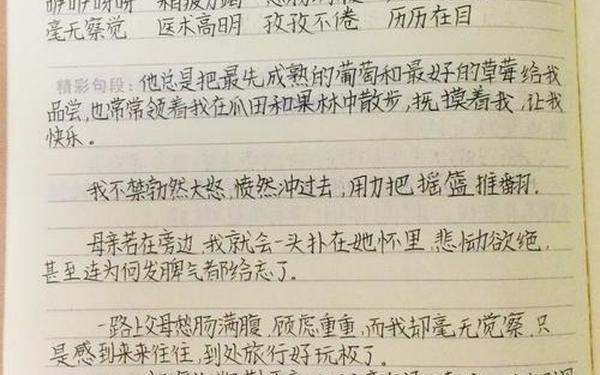 毫无察觉 医术高明 孜孜不倦 历历在目
精彩句段：他总是把最先成熟的葡萄和最好的草莓给我
品尝，也常常领着我在瓜田和果林中散步，抚摸着我，让我
快乐。
我不禁勃然大怒，愤然冲过去，用力把摇篮推翻。
母亲若在旁边，我就会一头扑在她怀里，悲恸欲绝，
甚至连为何发脾气都给忘了。
一路上父母愁肠满腹，顾虑重重，而我却毫无觉察，只
是感到来来往往，到处旅行好玩极了。